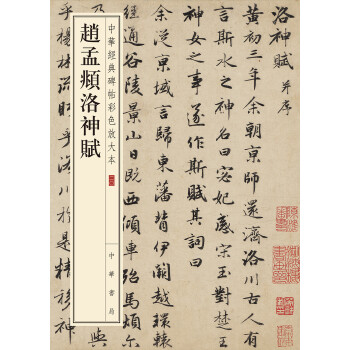 洛神賦 并序
黃初三年余朝京師還濟洛川古人有
言斯水之神名曰宓妃感宋玉對楚王
神女之事遂作斯賦其詞曰
余從京域言歸東藩背伊闕越轘轅
經通谷陵景山日既西傾車殆馬煩
中華經典碑帖彩色放大本
趙孟頫洛神賦
中華書局
與
乎楊林流眄乎洛川於是精移神